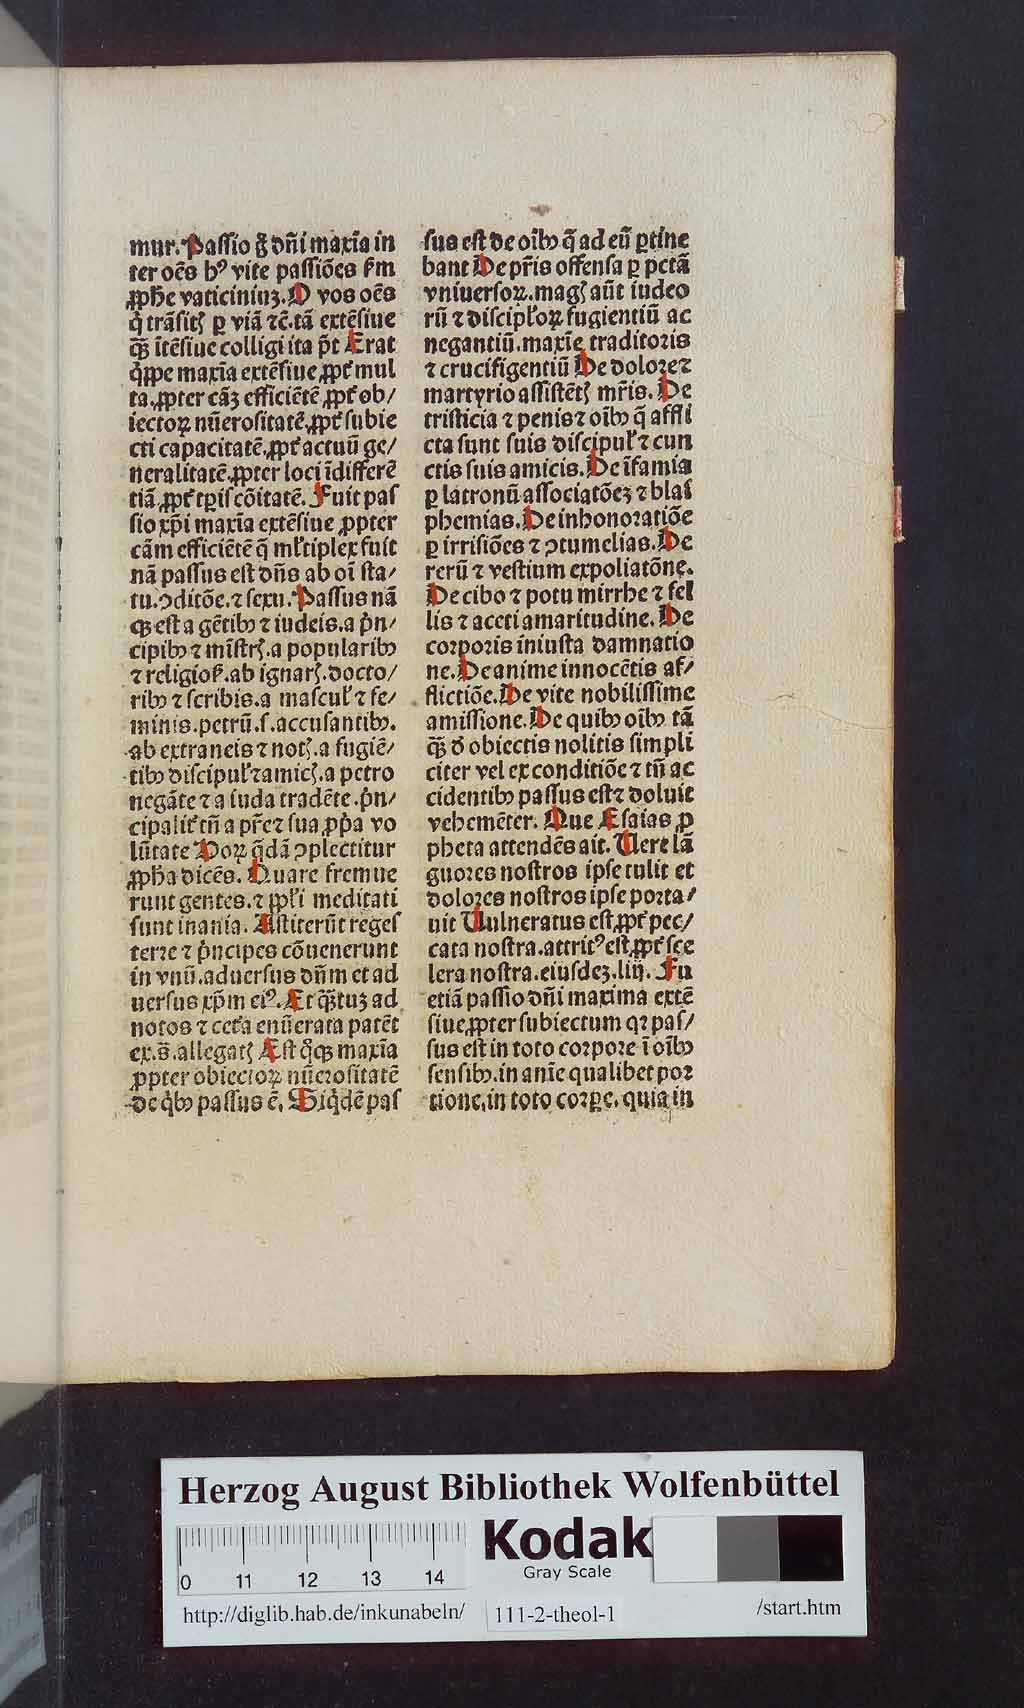 mur. Passio g̃ dñi maxīa in
ter oēs hꝰ vite passiōes ẜm
ꝓph̄e vaticiniuꝫ. O vos oēs
q̇ trāsitꝭ ꝑ viā ⁊c̄. tā extēsiue
qꝫ̄ ītēsiue colligi ita p̄t Erat
q̇ppe maxīa extēsiue ꝓpt̄ mul
ta. ꝓpter cāꝫ efficiētē ꝓpt̄ ob/
iectoꝝ nūerositatē. ꝓpt̄ subie
cti capacitatē. ꝓpt̄ actuū ge/
neralitatē. ꝓpter loci īdifferē
tiā. ꝓpt̄ tꝑis cōitatē. Fuit pas
sio xp̄i maxīa extēsiue ꝓpter
cām efficiētē q̄ ml̄tiplex fuit
nā passus est dñs ab oī sta/
tu. ꝯditōe. ⁊ sexu. Passus nā
qꝫ est a gētibꝰ ⁊ iudeis. a p̓n/
cipibꝰ ⁊ mīstrꝭ. a popularibꝰ
⁊ religioẜ. ab ignarꝭ. docto/
ribꝰ ⁊ scribis. a mascul̄ ⁊ fe/
minis. petrū. s. accusantibꝰ.
ab extraneis ⁊ notꝭ. a fugiē/
tibꝰ discipul̄ ⁊ amicꝭ. a petro
negāte ⁊ a iuda tradēte. p̓n/
cipalit̄ tñ a pr̄e ⁊ sua ꝓp̓a vo
lūtate Doꝝ q̄dā ꝯplectitur
ꝓph̄a dicēs. Quare fremue
runt gentes. ⁊ ppl̄i meditati
sunt inania. Astiterūt reges
terre ⁊ p̓ncipes cōuenerunt
in vnū. aduersus dñm et ad
uersus xp̄m eiꝰ. Et qꝫ̄tuꝫ ad
notos ⁊ cet̄a enūerata patēt
ex. s̄. allegatꝭ Est q̇qꝫ maxīa
ꝓpter obiectoꝝ nūerositatē
de q̇bꝰ passus ē. Siq̇dē pas
sus est de oībꝰ q̄ ad eū ꝑtine
bant De pr̄is offensa ꝑ pctā
vniuersoꝝ. magꝭ aūt iudeo
rū ⁊ discipl̄oꝝ fugientiū ac
negantiū. maxīe traditoris
⁊ crucifigentiū De dolore ⁊
martyrio assistētꝭ mr̄is. De
tristicia ⁊ penis ⁊ oībꝰ q̄ affli
cta sunt suis discipul̄ ⁊ cun
ctis suis amicis. De īfamia
ꝑ latronū associatōeꝫ ⁊ blas
phemias. De inhonoratiōe
ꝑ irrisiōes ⁊ ꝯtumelias. De
rerū ⁊ vestium expoliatōne.
De cibo ⁊ potu mirrhe ⁊ fel
lis ⁊ aceti amaritudine. De
corporis iniusta damnatio
ne. De anime innocētis af/
flictiōe. De vite nobilissime
amissione. De quibꝰ oībꝰ tā
qꝫ̄ đ obiectis nolitis simpli
citer vel ex conditiōe ⁊ tñ ac
cidentibꝰ passus est ⁊ doluit
vehemēter. Que Esaias ꝓ
pheta attendēs ait. Uere lā
guores nostros ipse tulit et
dolores nostros ipse porta/
uit Uulneratus est ꝓpt̄ pec/
cata nostra. attritꝰ est ꝓpt̄ sce
lera nostra. eiusdeꝫ. liij. Fu
etiā passio dñi maxima extē
siue ꝓpter subiectum qꝛ pas/
sus est in toto corpore ī oībꝰ
sensibꝰ. in anīe qualibet por
tione, in toto corꝑe. quia in
Herzog August Bibliothek Wolfenbüttel
Kodak
Gray Scale
0 11 12 13 14
http://diglib.hab.de/inkunabeln/
111-2-theol-1
/start.htm